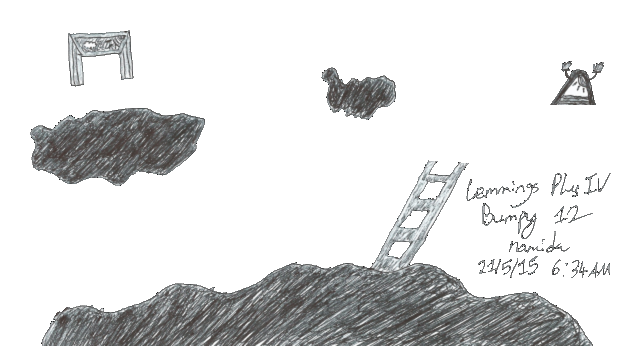 Lemmings Plus IV
Bumpy 12
namida
21/5/15 6:34 AM